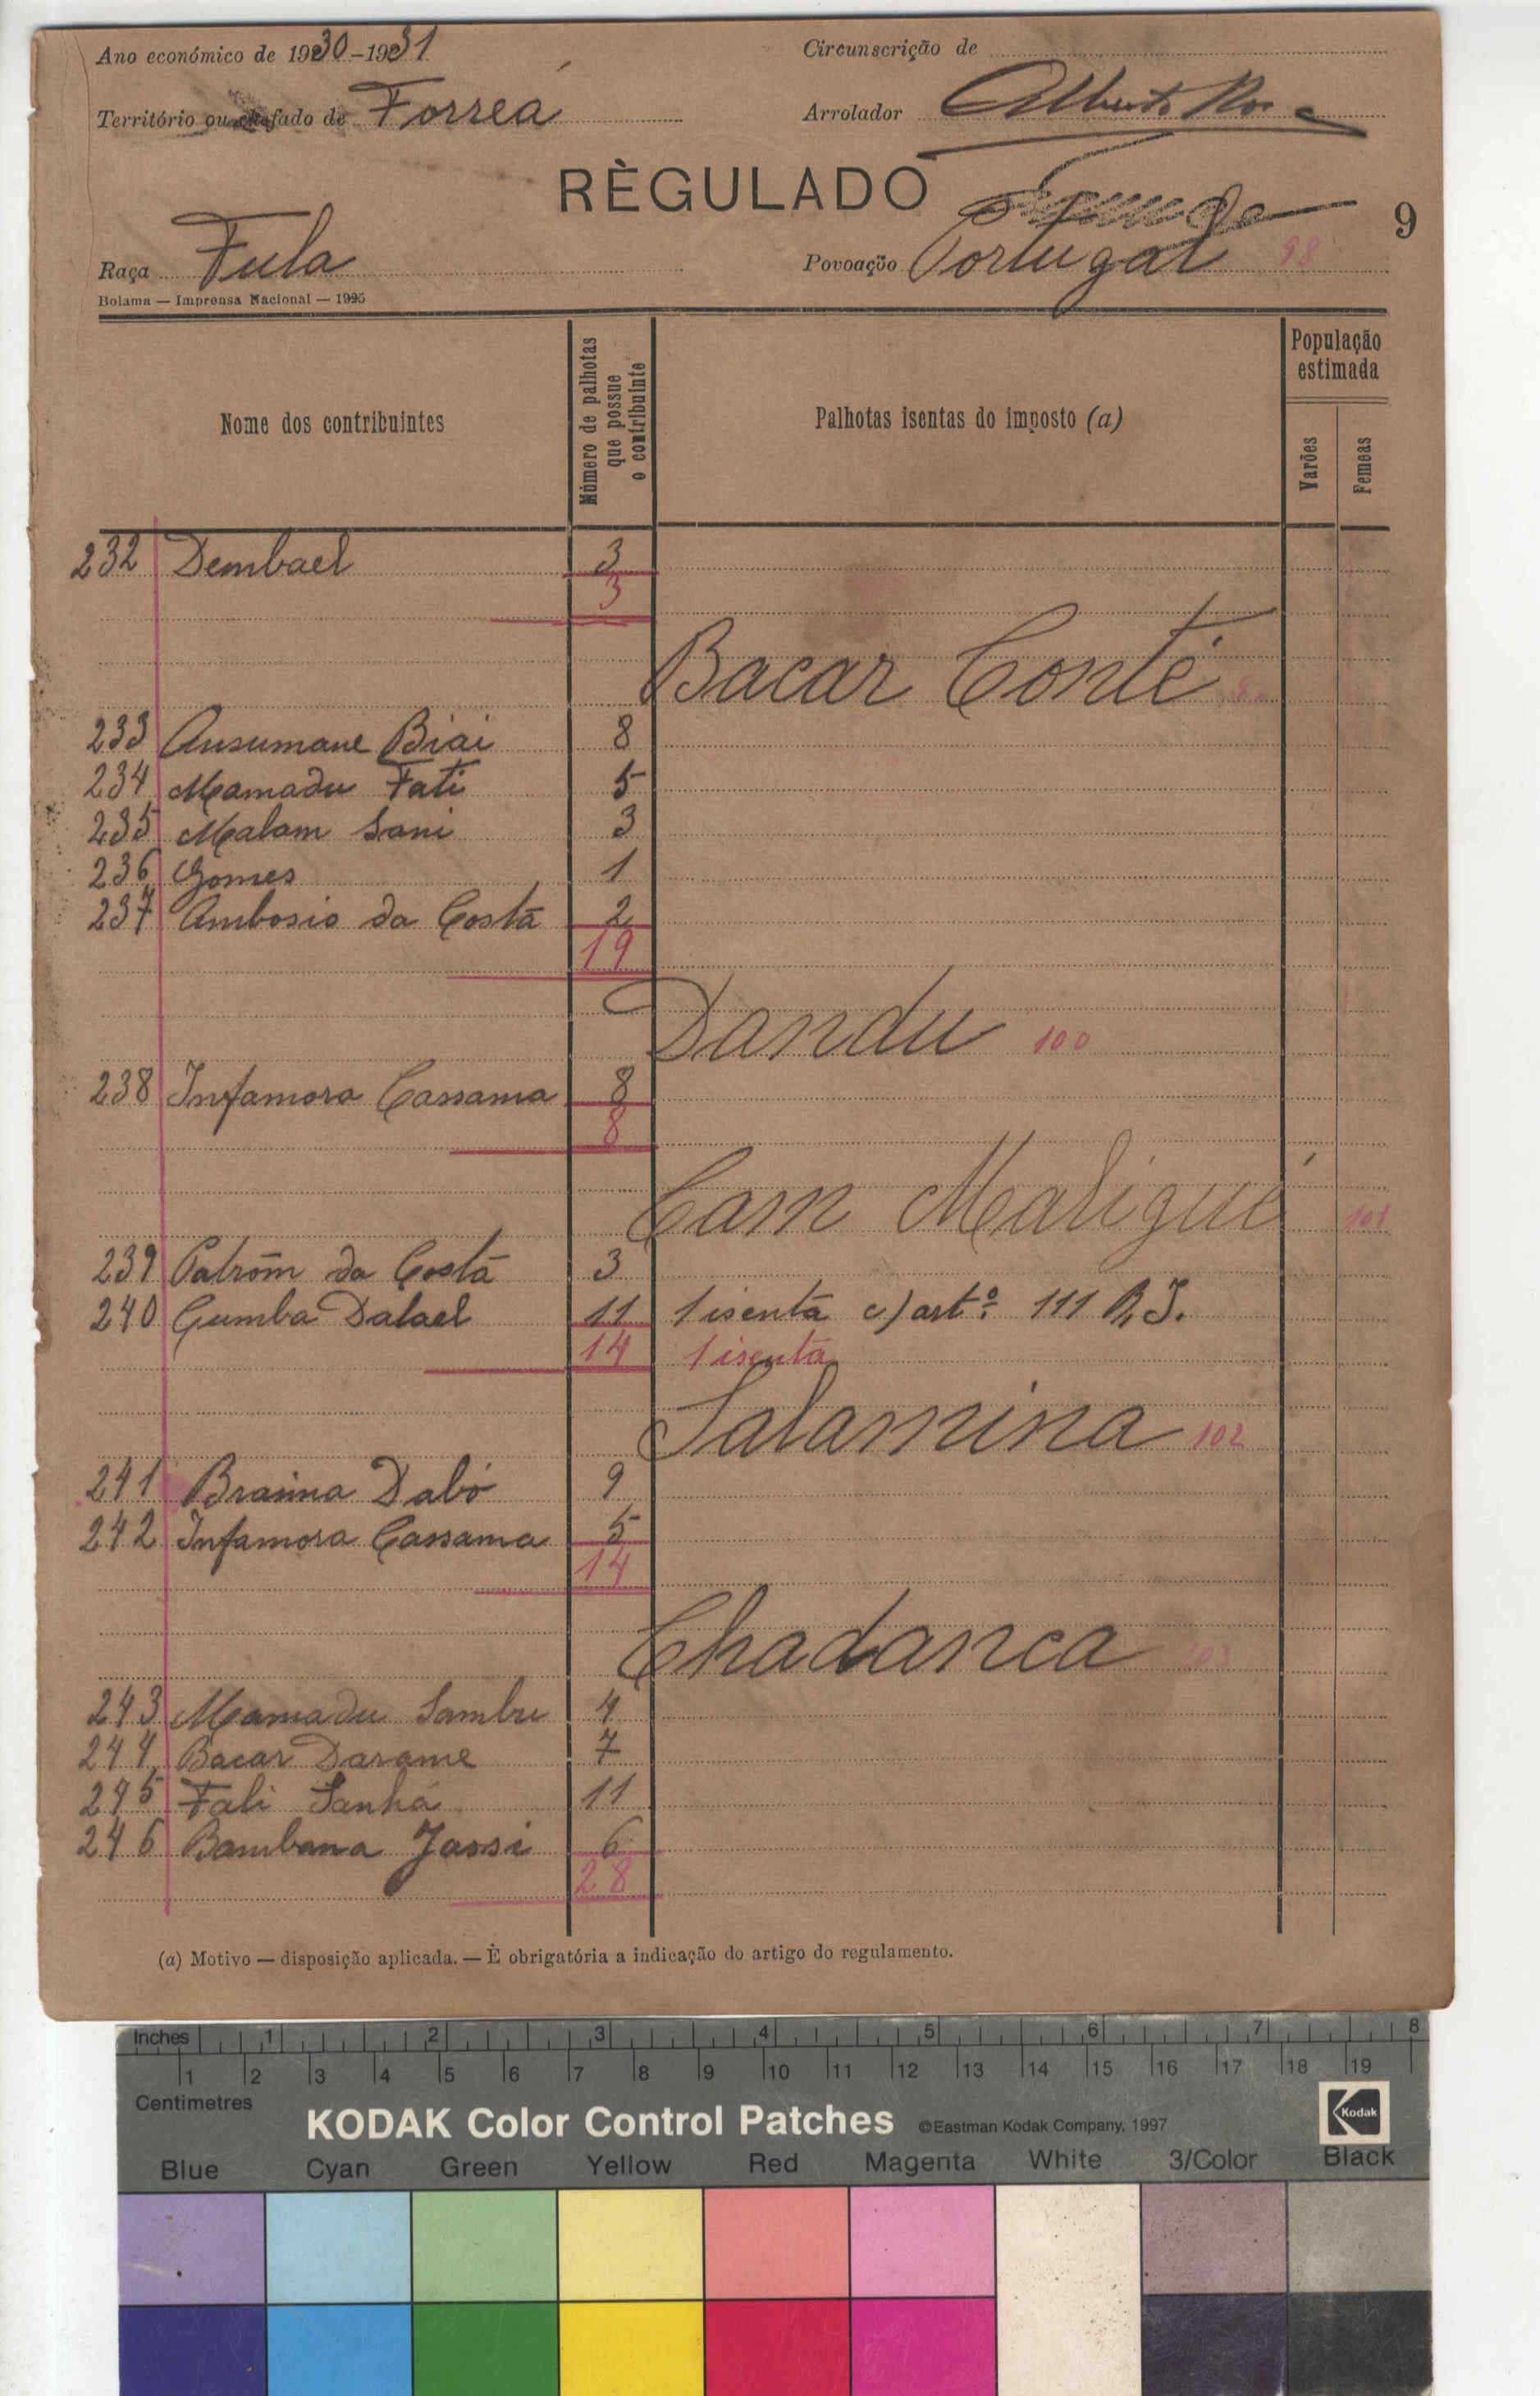 Ano económico de 1930-1931
Circunscrição de
Território ou chefado de Forreá
Arrolador Alberto
RÈGULADO
9
Raça Fula
Povoação Portugal 98
Bolama — Imprensa Nacional — 1925
Nome dos contribuintes
Número de palhotas que possue o contribuinte
Palhotas isentas do imposto (a)
População estimada
Varões
Femeas
232 Dembael 3
3
Bacar Conté
233 Ansumane Biai 8
234 Mamadu Fati 5
235 Malam Sani 3
236 Gomes 1
237 Ambosio da Costa 2
19
Dandu 100
238 Infamora Cassama 8
8
Cam Maligué 101
239 Patrõm da Costa 3
240 Cumba Dalael 11 1 isenta c) artº. 111 R. I.
14 1 isenta
Salamina 102
241 Braima Dabó 9
242 Infamora Cassama 5
14
Chadanca 103
243 Mamadu Sambu 4
244 Bacar Darame 7
245 Fali Sanhá 11
246 Bambana Jassi 6
28
(a) Motivo — disposição aplicada. — È obrigatória a indicação do artigo do regulamento.
Inches 1 2 3 4 5 6 7 8
1 2 3 4 5 6 7 8 9 10 11 12 13 14 15 16 17 18 19
Centimetres
KODAK Color Control Patches ©Eastman Kodak Company, 1997 Kodak
Blue Cyan Green Yellow Red Magenta White 3/Color Black